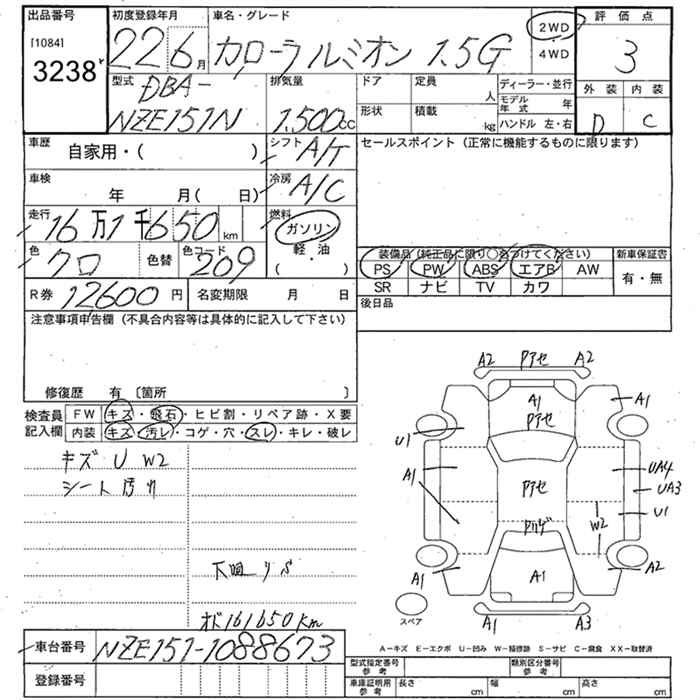 出品番号 初度登録年月 車名・グレード 2WD 評価点
[1084] 22 6月 カローラルミオン 1.5G 4WD 3
3238
型式 排気量 ドア 定員 人 ディーラー・並行 外装 内装
DBA- 形状 積載 kg モデル年式 年 D C
NZE151N 1,500cc ハンドル 左・右
車歴 自家用・( ) シフト A/T セールスポイント (正常に機能するものに限ります)
車検 年 月 ( 日) 冷房 A/C
走行 16万1千650km 燃料 ガソリン
軽・油
( )
色 クロ 色替 色コード 209 装備品 (純正品に限り○をつけてください) 新車保証書
PS PW ABS エアB AW 有・無
SR ナビ TV カワ
R券 12600円 名変期限 月 日 後日品
注意事項申告欄 (不具合内容等は具体的に記入して下さい)
修復歴 有 〔箇所 〕
検査員 FW キズ・飛石・ヒビ割・リペア跡・X要
記入欄 内装 キズ・汚レ・コゲ・穴・スレ・キレ・破レ
キズ U W2
シート汚れ
下廻りサビ
オド161650km
A2 Pアセ A2
A1 A1
Pアセ
U1
A1 Pアセ UA4
UA3
U1
W2
A1 A1 A2
スペア A1 A3
A-キズ E-エクボ U-凹み W-補修跡 S-サビ C-腐食 XX-取替済
車台番号 NZE151-1088673
型式指定番号 参考 類別区分番号 参考
登録番号
車庫証明用 参考 長さ cm 幅 cm 高さ cm